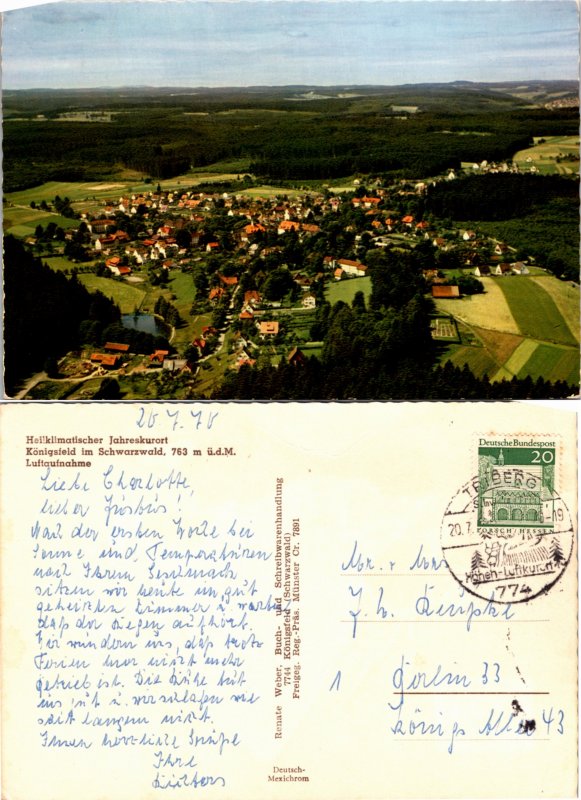 20.7.70
Heilklimatischer Jahreskurort
Königsfeld im Schwarzwald, 763 m ü.d.M.
Luftaufnahme
Liebe Charlotte,
lieber
Nach der ersten Woche bei
Sonne und Temperaturen
nach Ihrem Geschmack
sitzen wir heute im gut
geheizten Zimmer u. warten
daß der Regen aufhört.
Wir wundern uns, daß trotz
Ferien hier nicht mehr
Betrieb ist. Die Ruhe tut
uns gut u. wir schlafen wie
seit langem nicht.
Ihnen herzliche Grüße
Ihre
Renate Weber, Buch- und Schreibwarenhandlung
7744 Königsfeld (Schwarzwald)
Freigeg. Reg.-Präs. Münster Cr. 7891
Deutsch-
Mexichrom
Deutsche Bundespost
20
LORSCH/HESSEN
TRIBERG
20.7.
-19
Höhen-Luftkurort
774
Mr. u. Mrs.
1
Berlin 33
Königs Allee 43